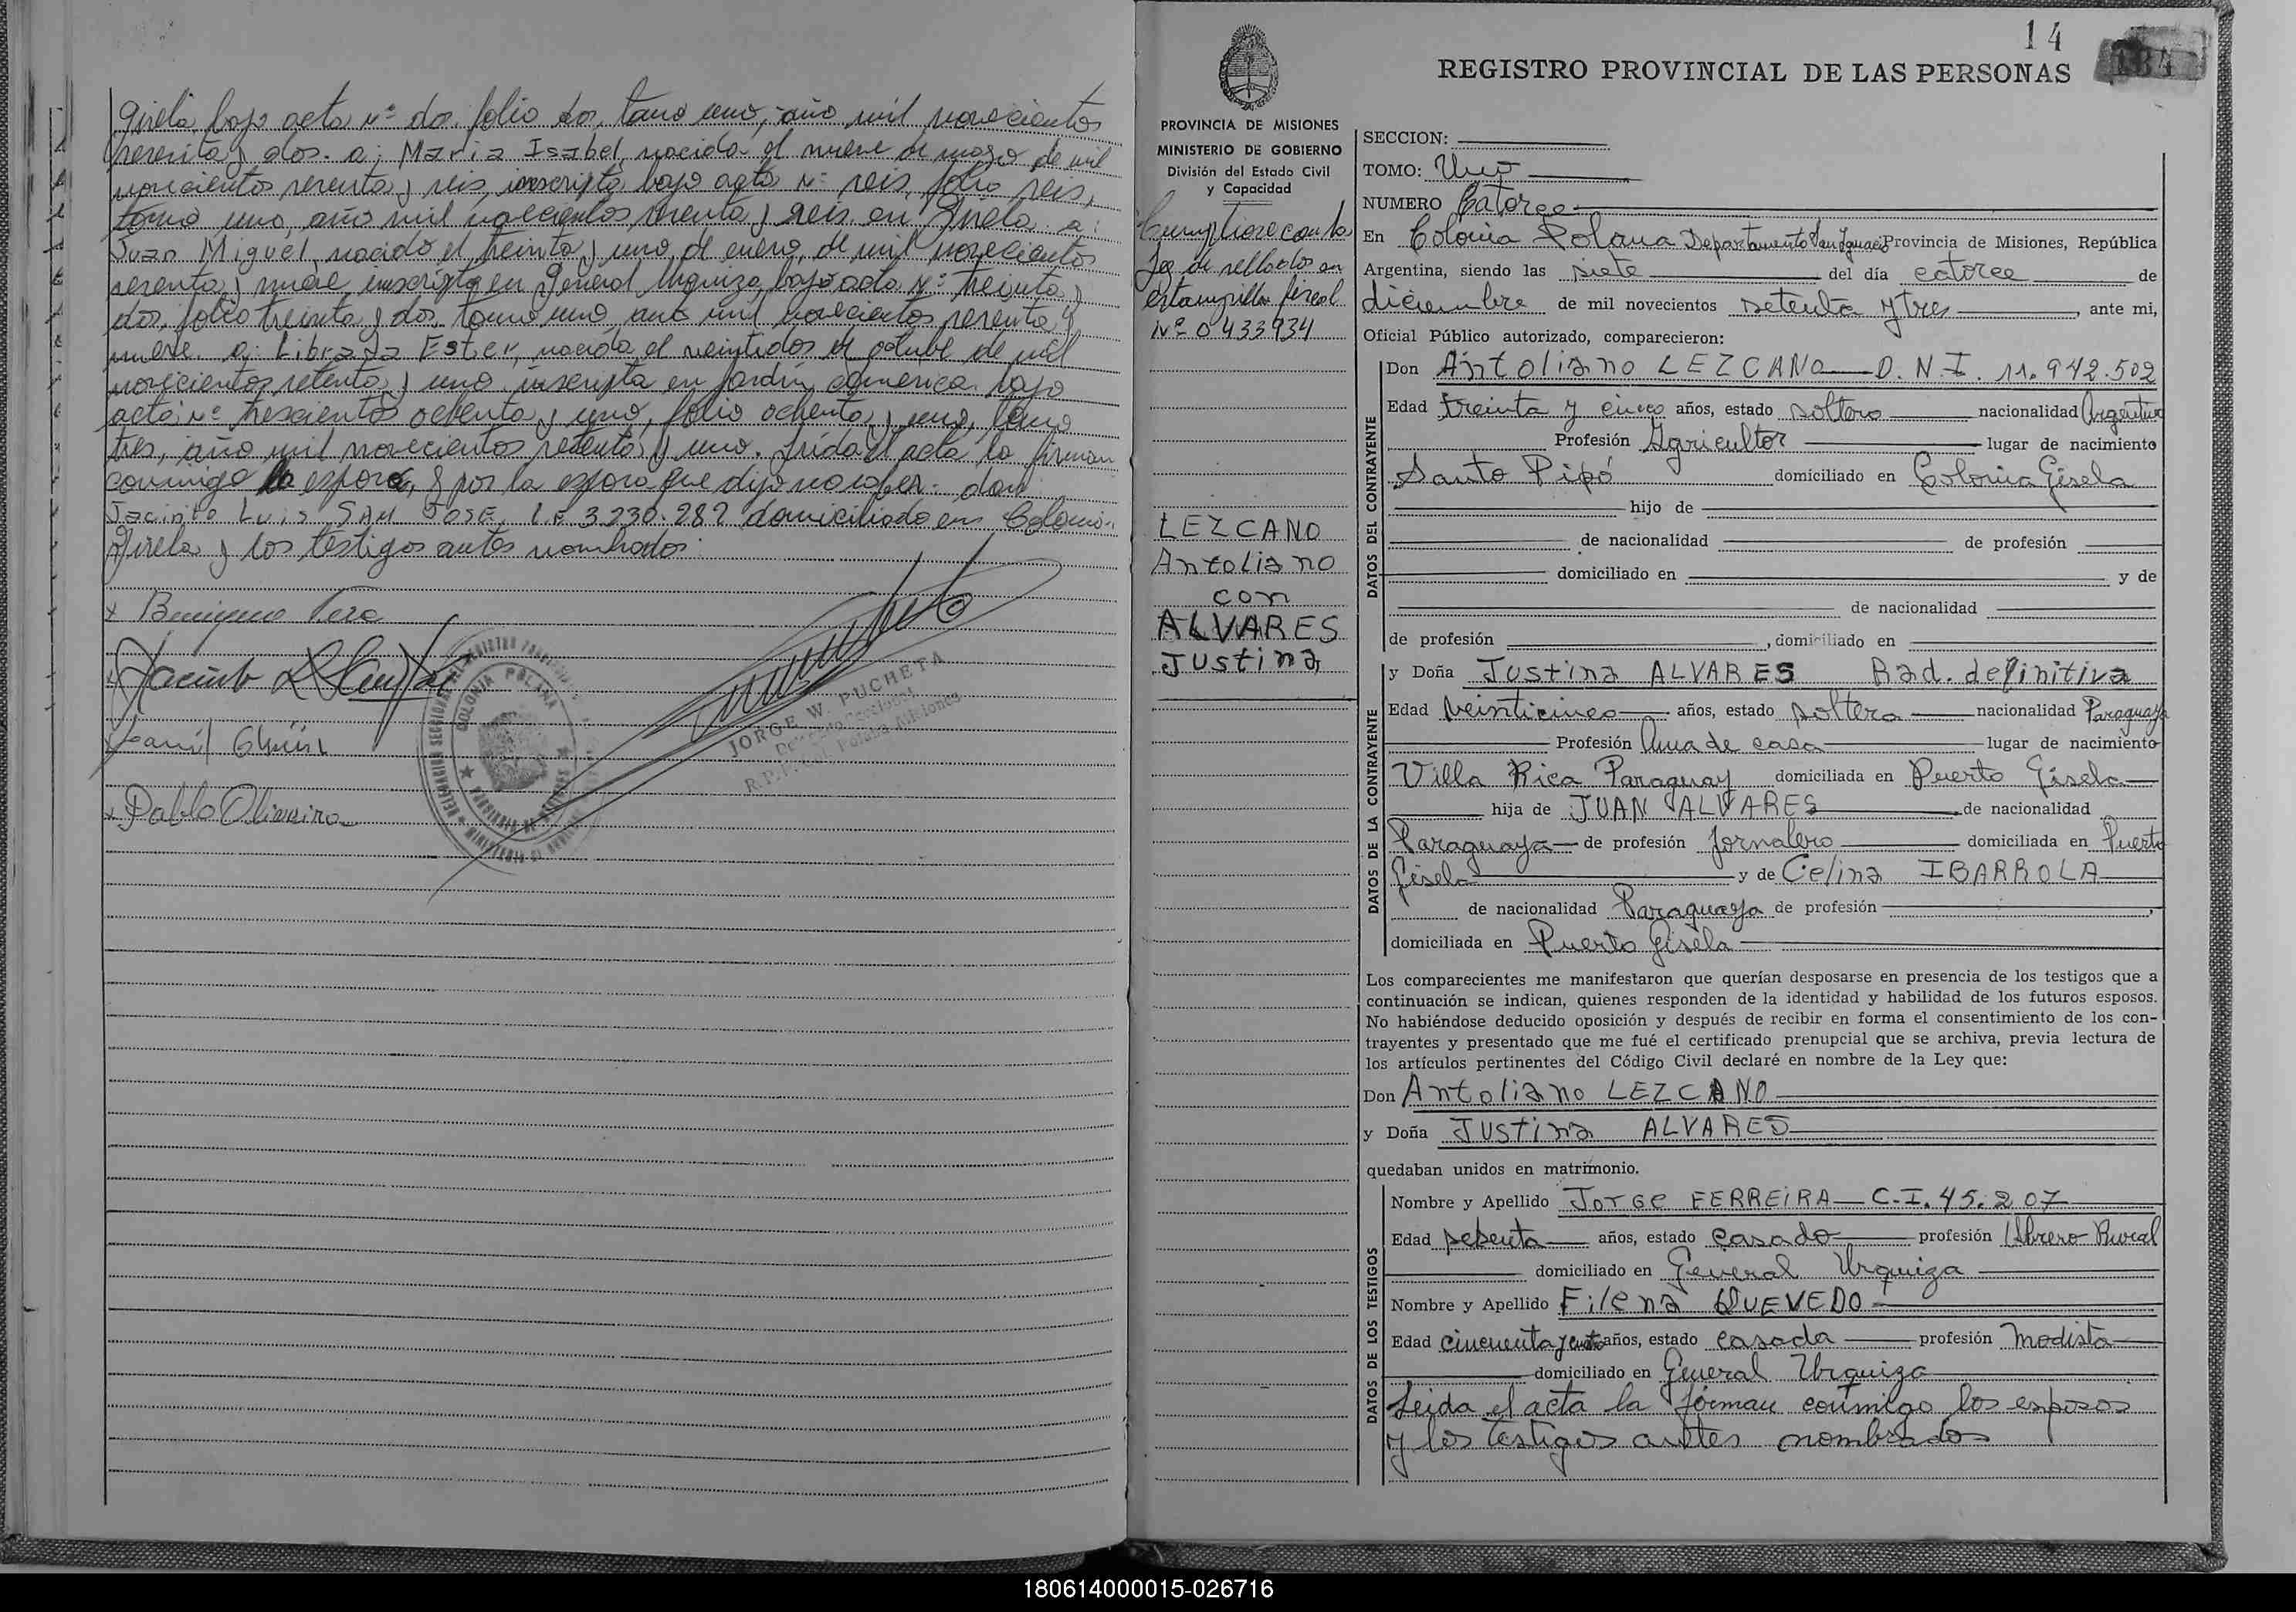 Gisela, bajo acta Nº dos. folio dos, tomo uno, año mil novecientos
sesenta y dos. a: Maria Isabel, nacida el nueve de mayo de mil
novecientos sesenta y seis, inscripta bajo acta Nº seis, folio seis,
tomo uno, año mil novecientos sesenta y seis en Gisela. a:
Juan Miguel, nacido el treinta y uno de enero, de mil novecientos
sesenta y nueve inscripto en General Urquiza bajo acta Nº treinta y
dos, folio treinta y dos, tomo uno, año mil novecientos sesenta y
nueve. a: Librada Ester, nacida el veintidos de octubre de mil
novecientos setenta y uno inscripta en Jardín América bajo
acta Nº trescientos ochenta y uno, folio ochenta y uno, tomo
tres, año mil novecientos setenta y uno. Leída el acta la firman
conmigo esposo, y por la esposa que dijo no saber: don
Jacinto Luis SAN JOSE, L.E 3.230.282 domiciliado en Colonia
Gisela y los testigos antes nombrados.
x Benigno Vera
Jacinto
Pablo Oliveira
COLONIA POLANA
JORGE W. PUCHETA
14
134
REGISTRO PROVINCIAL DE LAS PERSONAS
PROVINCIA DE MISIONES
MINISTERIO DE GOBIERNO
División del Estado Civil
y Capacidad
Cumpliose con la
Ley de sellados en
estampilla fiscal
Nº 0433934
LEZCANO
Antoliano
con
ALVARES
Justina
SECCION:
TOMO: Uno
NUMERO Catorce
En Colonia Polana Departamento San Ignacio Provincia de Misiones, República
Argentina, siendo las siete del día catorce de
diciembre de mil novecientos setenta y tres, ante mi,
Oficial Público autorizado, comparecieron:
DATOS DEL CONTRAYENTE
Don Antoliano LEZCANO D.N.I. 11.942.502
Edad treinta y cinco años, estado soltero nacionalidad Argentina
Profesión Agricultor lugar de nacimiento
Santo Pipó domiciliado en Colonia Gisela
hijo de
de nacionalidad de profesión
domiciliado en y de
de nacionalidad
de profesión , domiciliado en
DATOS DE LA CONTRAYENTE
y Doña Justina ALVARES Rad. definitiva
Edad veinticinco años, estado soltera nacionalidad Paraguaya
Profesión Ama de casa lugar de nacimiento
Villa Rica Paraguay domiciliada en Puerto Gisela
hija de JUAN ALVARES de nacionalidad
Paraguaya de profesión Jornalero domiciliada en Puerto
Gisela y de Celina IBARROLA
de nacionalidad Paraguaya de profesión ,
domiciliada en Puerto Gisela
Los comparecientes me manifestaron que querían desposarse en presencia de los testigos que a
continuación se indican, quienes responden de la identidad y habilidad de los futuros esposos.
No habiéndose deducido oposición y después de recibir en forma el consentimiento de los con-
trayentes y presentado que me fué el certificado prenupcial que se archiva, previa lectura de
los artículos pertinentes del Código Civil declaré en nombre de la Ley que:
Don Antoliano LEZCANO
y Doña Justina ALVARES
quedaban unidos en matrimonio.
DATOS DE LOS TESTIGOS
Nombre y Apellido Jorge FERREIRA C.I. 45.207
Edad sesenta años, estado casado profesión Obrero Rural
domiciliado en General Urquiza
Nombre y Apellido Filena QUEVEDO
Edad cincuenta y cuatro años, estado casada profesión Modista
domiciliado en General Urquiza
Leida el acta la firman conmigo los esposos
y los testigos antes nombrados
180614000015-026716